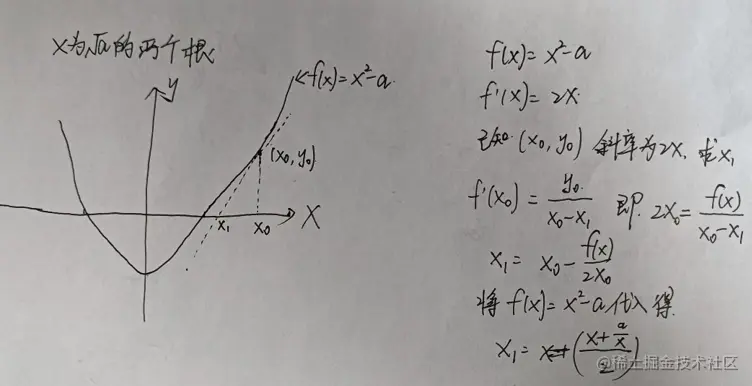 X为√a的两个根
y
f(x)=x²-a.
(x₀,y₀)
x₁ x₀ X
f(x)=x²-a
f'(x)=2x.
已知.(x₀,y₀) 斜率为2x, 求x₁
f'(x₀)=y₀/(x₀-x₁) 即. 2x₀=f(x)/(x₀-x₁)
x₁= x₀-f(x)/2x₀
将 f(x)=x²-a代入得.
x₁= ((x+a/x)/2)
@稀土掘金技术社区